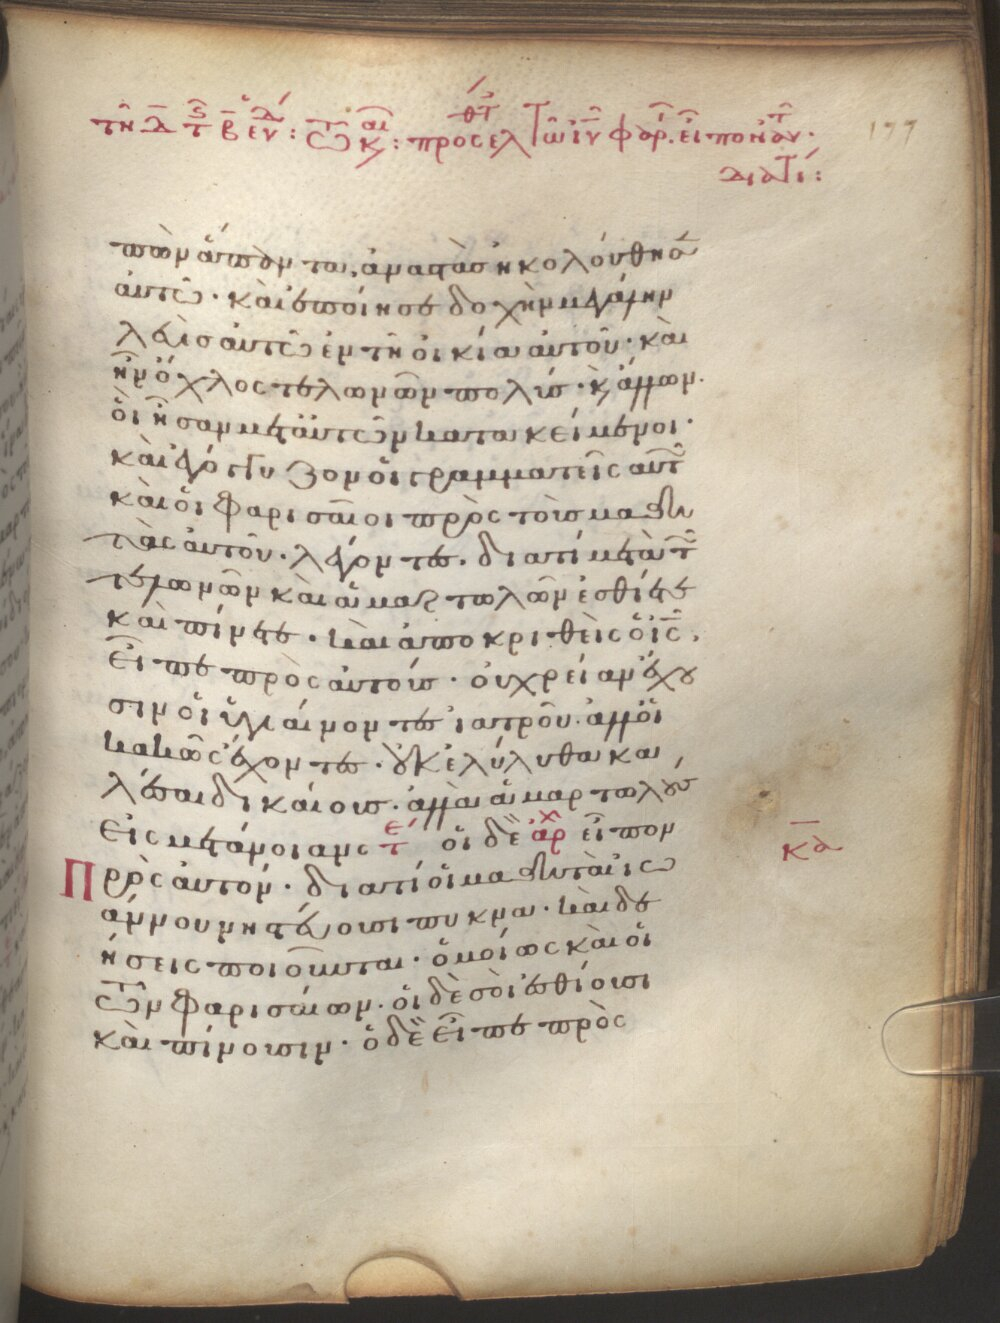 τῆ δ τῆς β ἑβδ : τῷ καιρ : προσελθ τῷ ιυ φαρ. εἶπον αὐτ.
177
διατί :
πὼν ἅπαντα, ἀναστὰσ ἠκολούθησ
αὐτῶ · καὶ ἐποίησε δοχὴν μεγάλην
λευὶσ αὐτῶ ἐν τῆ οἰκία αὐτοῦ · καὶ
ἦν ὄχλος τελωνῶν πολύσ · κ ἄλλων ·
οἳ ἦσαν μετ αὐτῶν κατακείμενοι ·
καὶ ἐγόγγυζον οἱ γραμματεῖς αὐτ
καὶ οἱ φαρισαῖοι πρὸς τοὺσ μαθη
τὰς αὐτοῦ · λέγοντες · διατί μετὰ τ
τελωνῶν καὶ ἁμαρτωλῶν ἐσθίετε
καὶ πίνετε · καὶ ἀποκριθεὶς ὁ ις ·
εἶπε πρὸς αὐτούσ · οὐ χρείαν ἔχου
σιν οἱ ὑγιαίνοντες ἰατροῦ · ἀλλ οἱ
κακῶς ἔχοντες · οὐκ ἐλήλυθα κα
λέσαι δικαίουσ · ἀλλὰ ἁμαρτωλοὺσ
εἰς μετάνοιαν τε οἱ δὲ αρχ εἶπον
κα
Πρὸς αὐτόν · διατί οἱ μαθηταὶ ιω
άννου νηστεύουσι πυκνα · καὶ δε
ήσεις ποιοῦνται · ὁμοίως καὶ οἱ
τῶν φαρισαίων · οἱ δὲ σοὶ ἐσθίουσι
καὶ πίνουσιν · ὁ δὲ εἶπε πρὸς